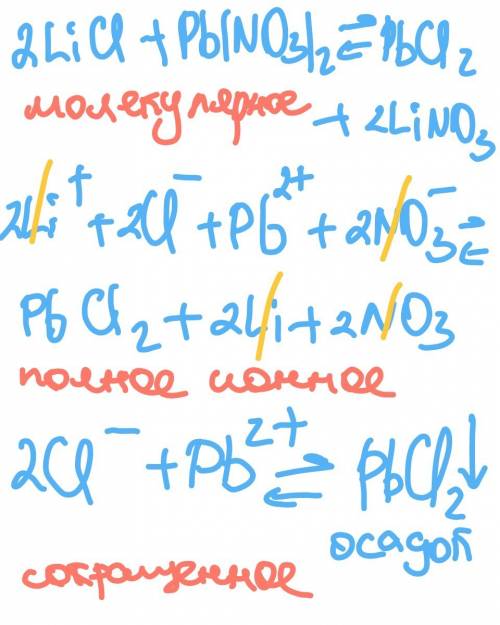 2LiCl + Pb(NO₃)₂ ⇄ PbCl₂
молекулярное + 2LiNO₃
2Li⁺ + 2Cl⁻ + Pb²⁺ + 2NO₃⁻ ⇄
PbCl₂ + 2Li + 2NO₃
полное ионное
2Cl⁻ + Pb²⁺ ⇄ PbCl₂↓
осадок
сокращенное